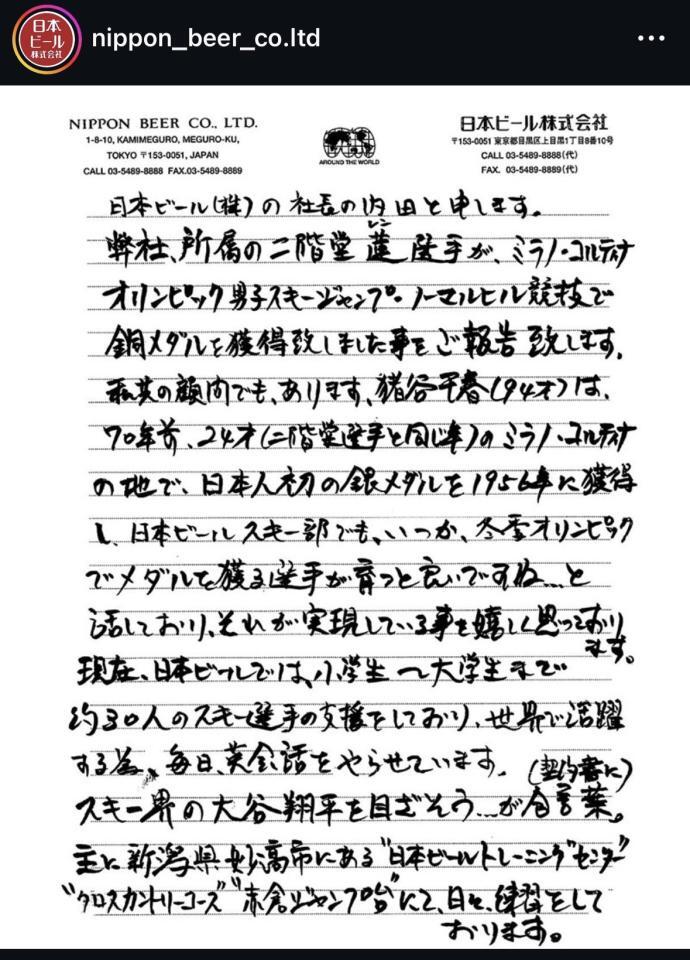 日本
ビール
株式会社
nippon_beer_co.ltd
NIPPON BEER CO., LTD.
1-8-10, KAMIMEGURO, MEGURO-KU,
TOKYO 〒153-0051, JAPAN
CALL 03-5489-8888 FAX.03-5489-8889
AROUND THE WORLD
日本ビール株式会社
〒153-0051 東京都目黒区上目黒1丁目8番10号
CALL 03-5489-8888(代)
FAX. 03-5489-8889(代)
日本ビール(株)の社長の内田と申します。
レン
弊社、所属の二階堂 蓮 選手が、ミラノ・コルティナ
オリンピック男子スキージャンプ・ノーマルヒル競技で
銅メダルを獲得致しました事をご報告致します。
私共の顧問でも、あります、猪谷千春(94才)は、
70年前、24才(二階堂選手と同じ年)のミラノ・コルティナ
の地で、日本人初の銀メダルを1956年に獲得
し、日本ビールスキー部でも、いつか、冬季オリンピック
でメダルを獲る選手が育つと良いですね…と
話しており、それが実現している事を嬉しく思っており
ます。
現在、日本ビールでは、小学生〜大学生まで
約30人のスキー選手の支援をしており、世界で活躍
する為、毎日、英会話をやらせています。(契約書に)
スキー界の大谷翔平を目ざそう…が合言葉。
主に新潟県妙高市にある"日本ビールトレーニングセンター"
"クロスカントリーコース""赤倉ジャンプ台"にて、日々、練習をして
おります。